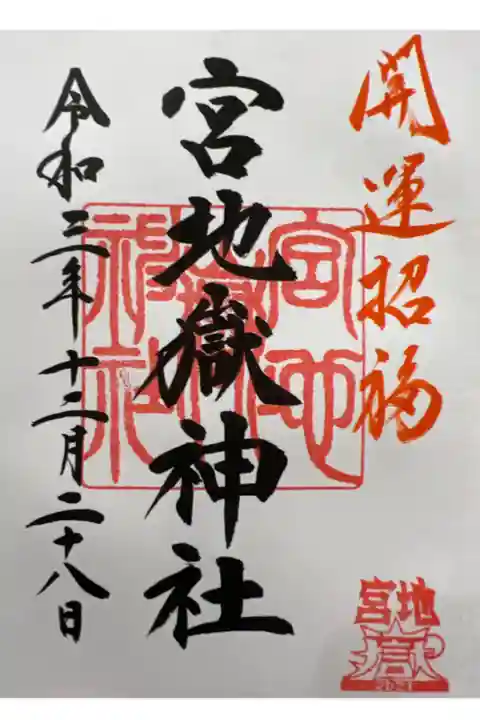 開運招福
宮地嶽神社
令和三年十二月二十八日
宮地
嶽神
社
宮地
嶽
2021